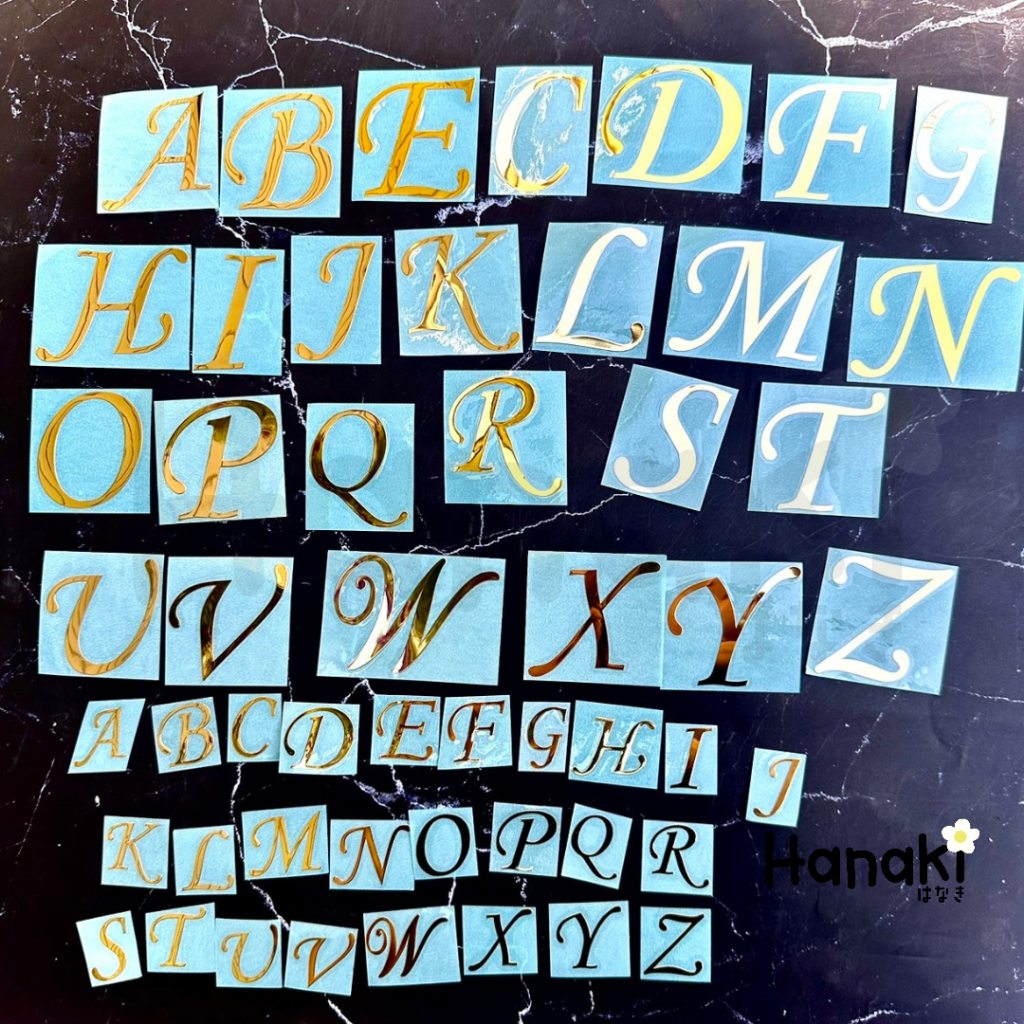 A B E C D F G
H I J K L M N
O P Q R S T
U V W X Y Z
A B C D E F G H I J
K L M N O P Q R
Hanaki
はなき
S T U V W X Y Z